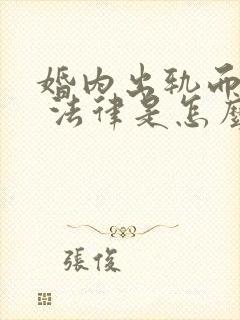 婚内出轨而
法律是怎
張俊